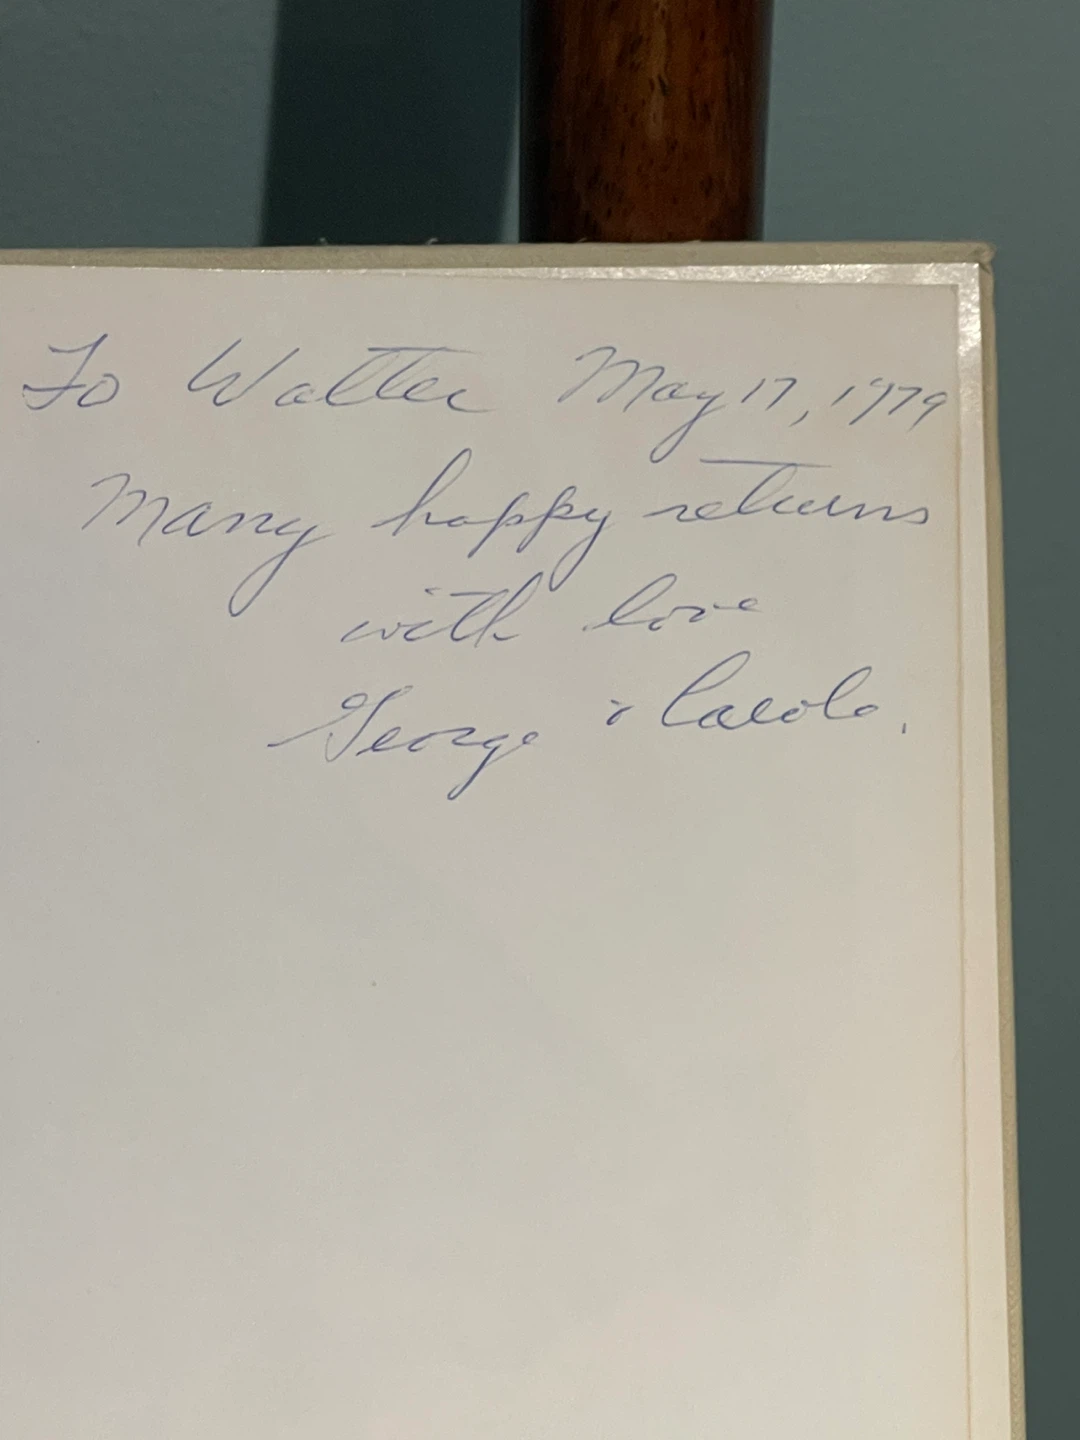 To Walter May 17, 1979
Many happy returns
with love
George & Carole.